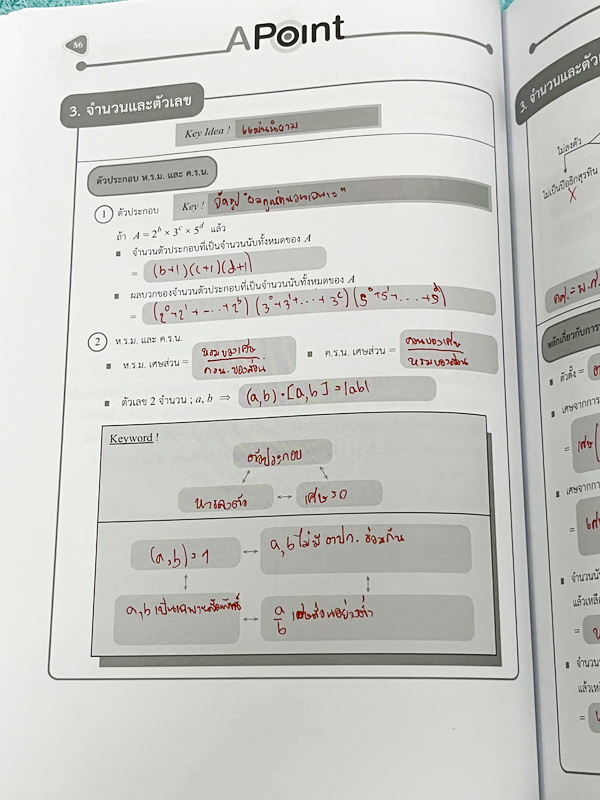 86
APoint
3. จำนวนและตัวเลข
Key Idea ! แม่นนิยาม
ตัวประกอบ ห.ร.ม. และ ค.ร.น.
1 ตัวประกอบ Key ! จัดรูป "ผลคูณจำนวนเฉพาะ"
ถ้า A = 2^b × 3^c × 5^d แล้ว
▪ จำนวนตัวประกอบที่เป็นจำนวนนับทั้งหมดของ A
= (b+1)(c+1)(d+1)
▪ ผลบวกของจำนวนตัวประกอบที่เป็นจำนวนนับทั้งหมดของ A
= (2^0+2^1+...+2^b)(3^0+3^1+...+3^c)(5^0+5^1+...+5^d)
2 ห.ร.ม. และ ค.ร.น.
▪ ห.ร.ม. เศษส่วน = หรมของเศษ / ครน.ของส่วน ▪ ค.ร.น. เศษส่วน = ครนของเศษ / หรมของส่วน
▪ ตัวเลข 2 จำนวน ; a, b ⇒ (a,b)·[a,b] = |ab|
Keyword !
ตัวประกอบ
หารลงตัว ↔ เศษ = 0
(a,b) = 1 ↔ a,b ไม่มี ตปก. ร่วมกัน
a,b เป็นเฉพาะสัมพัทธ์ ↔ a/b เศษส่วนอย่างต่ำ
3. จำนวนและตัวเ
ไม่ลงตัว
X
หลักเกี่ยวกับการ
▪ ตัวตั้ง =
▪ เศษจากการ
= เศษ
▪ เศษจากกา
=
▪ จำนวนนั
แล้วเหลือ
=
▪ จำนวน
แล้วเห
=